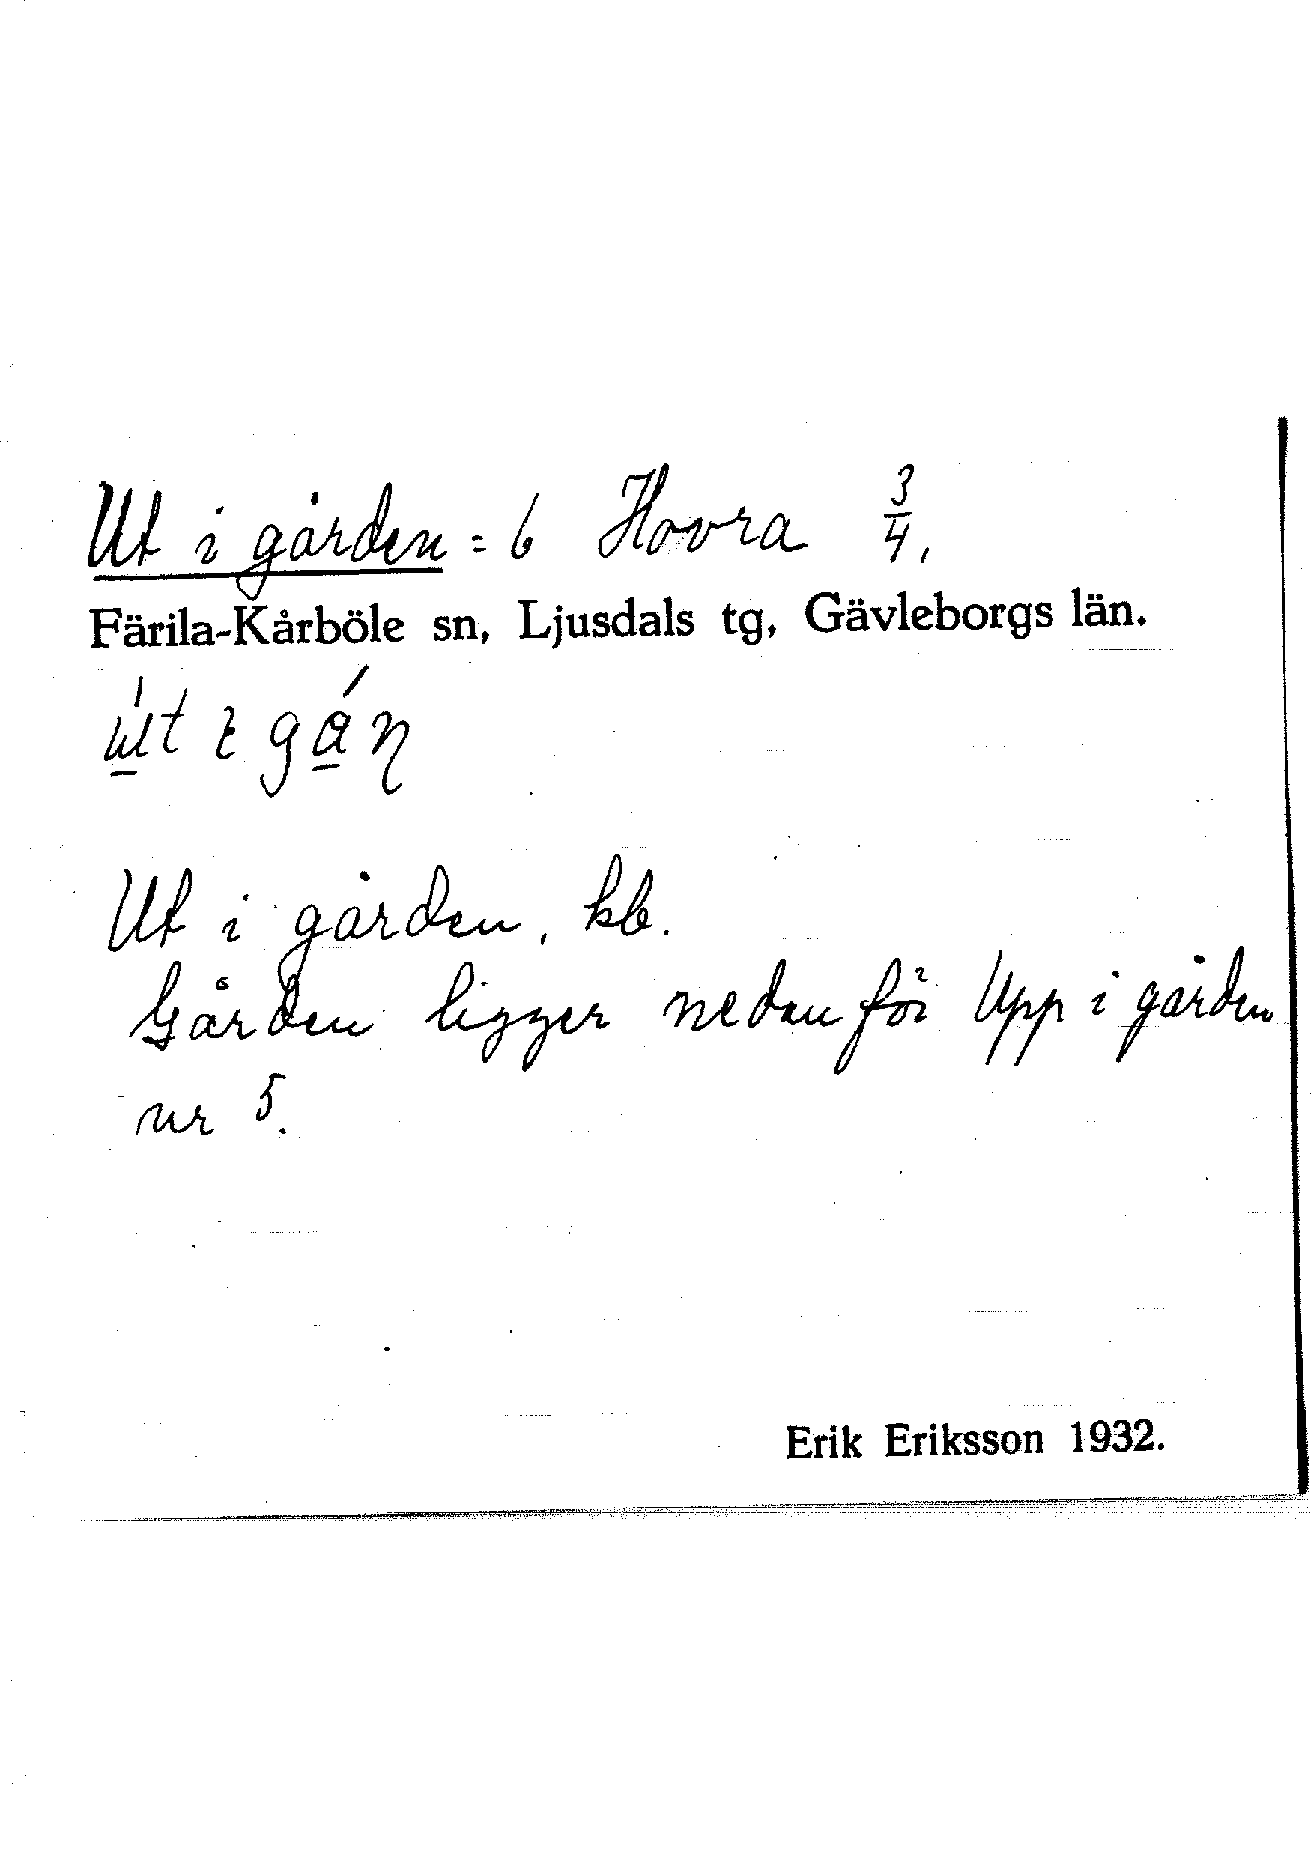 Ut i gården = 6 Hovra 3/4,
Färila-Kårböle sn, Ljusdals tg, Gävleborgs län.
Ut i gården, kb.
Gården ligger nedanför Upp i gården
nr 5.
Erik Eriksson 1932.